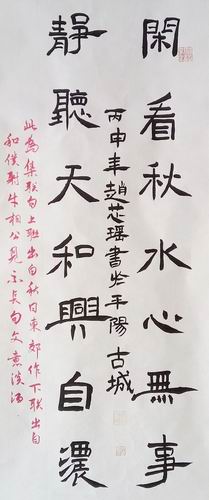 閑看秋水心無事
靜聽天和興自濃
丙申年趙芯瑶書於平陽古城
此為集聯句上聯出自秋日東郊作下聯出自
和僕射牛相公見示長句文意淡泊